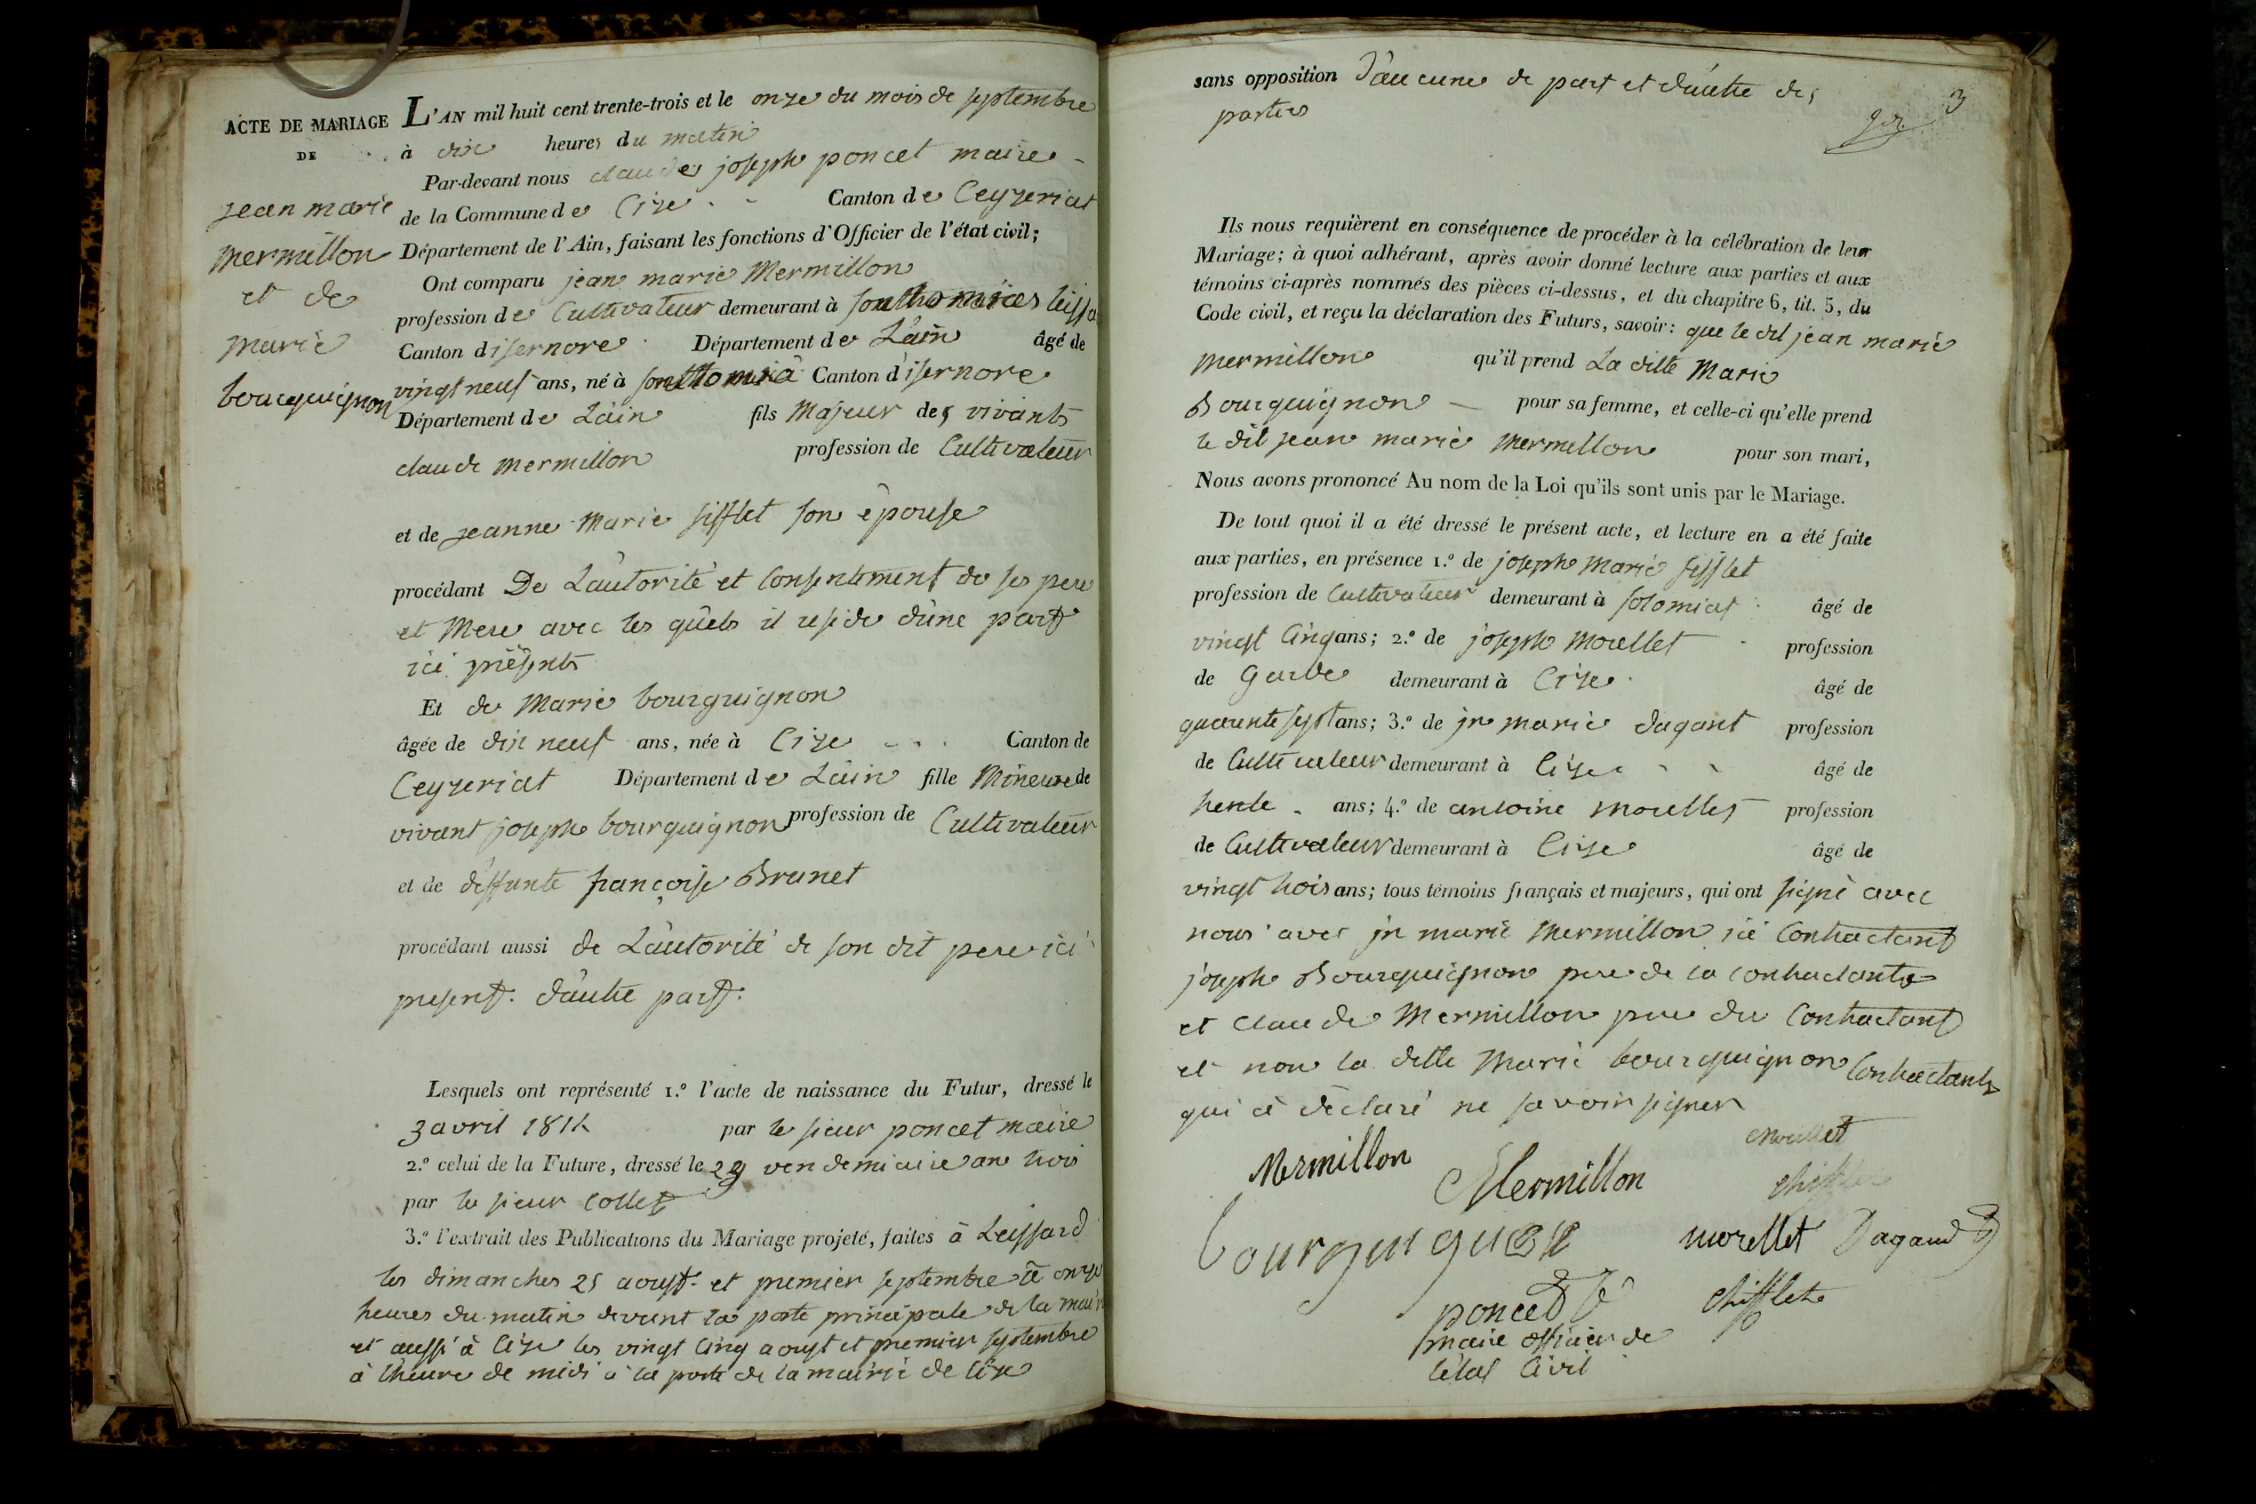 ACTE DE MARIAGE
DE
jean marie
Mermillon
et de
marie
bourguignon
L'AN mil huit cent trente-trois et le onze du mois de septembre
à dix heures du matin
Par-devant nous claude joseph poncet maire
de la Commune de Cize Canton de Ceyzeriat
Département de l'Ain, faisant les fonctions d'Officier de l'état civil;
Ont comparu jean marie Mermillon
profession de Cultivateur demeurant à
Canton disernore Département de L'ain âgé de
vingt neuf ans, né à Canton d'isernore
Département de L'ain fils Majeur des vivants
claude mermillon profession de Cultivateur
et de jeanne Marie sifflet son épouse
procédant De L'autorité et Consentement de ses pere
et Mere avec les quels il reside d'une part
ici présents
Et de Marie bourguignon
âgée de dix neuf ans, née à Cize Canton de
Ceyzeriat Département de L'ain fille Mineure de
vivant joseph bourguignon profession de Cultivateur
et de deffunte françoise Brunet
procédant aussi de L'autorité de son dit pere ici
present. d'autre part.
Lesquels ont représenté 1.º l'acte de naissance du Futur, dressé le
3 avril 1814 par le sieur poncet maire
2.º celui de la Future, dressé le 29 vendemiaire an trois
par le sieur Collet
3.º l'extrait des Publications du Mariage projeté, faites à Leissard
les dimanches 25 aoust et premier septembre à onze
heures du matin devant la porte principale de la mairie
et aussi à Cize les vingt Cinq aoust et premier septembre
à l'heure de midi à la porte de la mairie de Cize
sans opposition d'aucune de part et d'autre des
parties
3
Ils nous requièrent en conséquence de procéder à la célébration de leur
Mariage; à quoi adhérant, après avoir donné lecture aux parties et aux
témoins ci-après nommés des pièces ci-dessus, et du chapitre 6, tit. 5, du
Code civil, et reçu la déclaration des Futurs, savoir: que le dit jean marie
mermillon qu'il prend La ditte Marie
Bourguignon pour sa femme, et celle-ci qu'elle prend
le dit jean marie mermillon pour son mari,
Nous avons prononcé Au nom de la Loi qu'ils sont unis par le Mariage.
De tout quoi il a été dressé le présent acte, et lecture en a été faite
aux parties, en présence 1.º de joseph Marie sifflet
profession de Cultivateur demeurant à solomiat âgé de
vingt Cinq ans; 2.º de joseph Morellet profession
de Garde demeurant à Cize âgé de
quarente sept ans; 3.º de jn marie dagant profession
de Cultivateur demeurant à Cize âgé de
trente ans; 4.º de antoine morellet profession
de Cultivateur demeurant à Cize âgé de
vingt trois ans; tous témoins français et majeurs, qui ont signé avec
nous avec jn marie Mermillon ici Contractant
joseph Bourguignon pere de la contractante
et Claude Mermillon pere du Contractant
et non la ditte Marie bourguignon Contractante
qui a déclaré ne savoir signer
morellet
Mermillon
Mermillon
chifflet
bourguignon
morellet Dagand
poncet
chifflet
maire officier de
l'état Civil